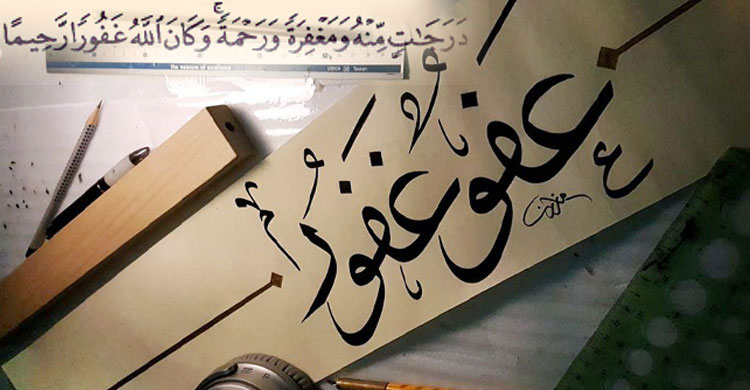 دَرَجَٰتٍ مِّنْهُ وَمَغْفِرَةً وَرَحْمَةً ۚ وَكَانَ ٱللَّهُ غَفُورًا رَّحِيمًا
the measure of excellence
عفوٌّ غفورٌ